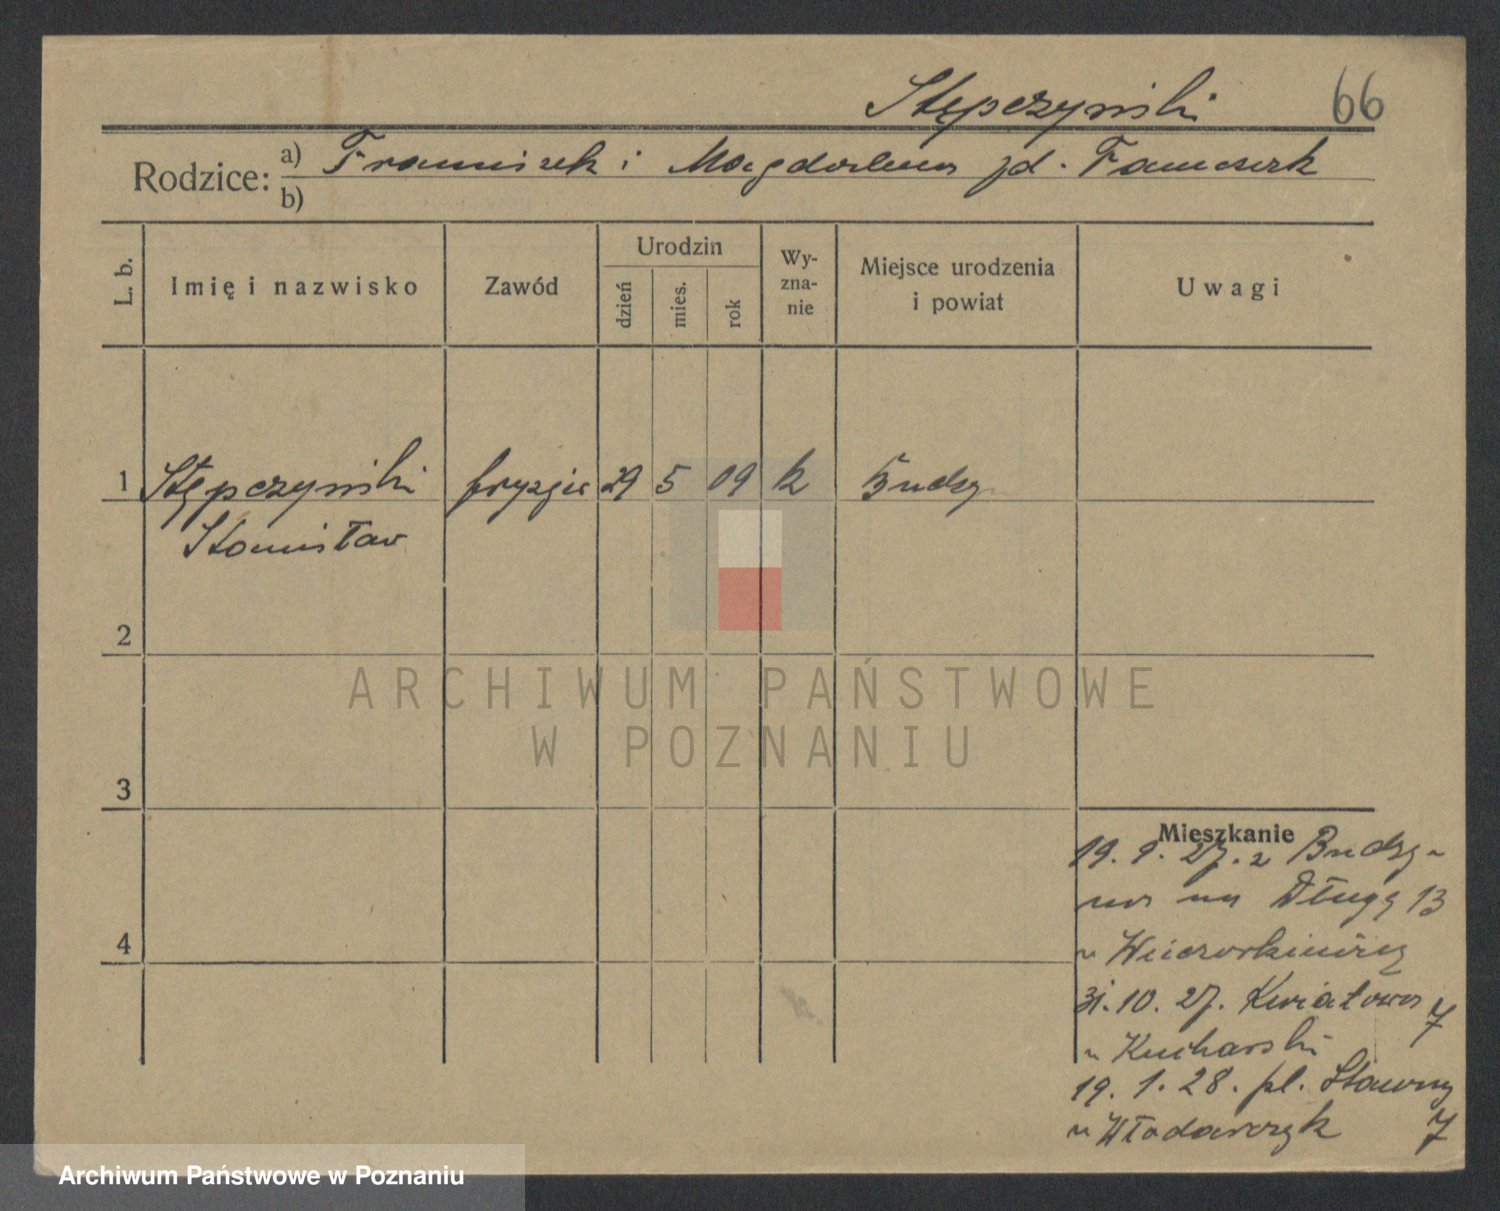 Stępczyński 66
Rodzice: a) Franciszek i Magdalena zd. Tomczak
b)
L. b.
Imię i nazwisko
Zawód
Urodzin
dzień
mies.
rok
Wy-
zna-
nie
Miejsce urodzenia
i powiat
Uwagi
1 Stępczyński fryzjer 29 5 09 k Budzyń
Stanisław
2
3
4
Mieszkanie
19. 9. 27. z Budzy-
nia na Długą 13
u Wieczorkiewicz
31. 10. 27. Kwiatowa 7
u Kucharski
19. 1. 28. pl. Sławny 7
u Włodarczyk
ARCHIWUM PAŃSTWOWE
W POZNANIU
Archiwum Państwowe w Poznaniu